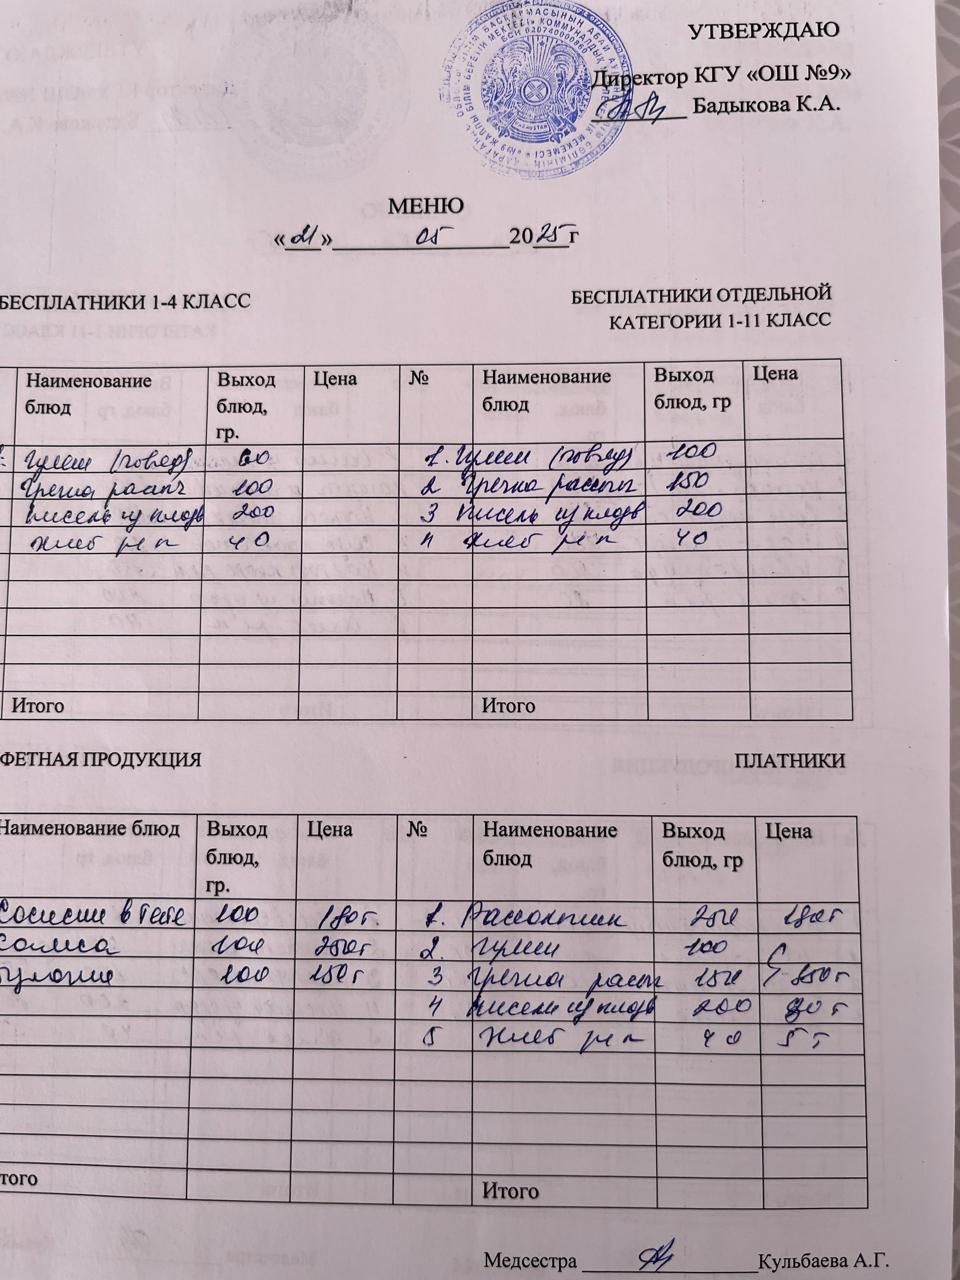 УТВЕРЖДАЮ
Директор КГУ «ОШ №9»
Бадыкова К.А.
МЕНЮ
«21» 05 2025г
БЕСПЛАТНИКИ 1-4 КЛАСС
БЕСПЛАТНИКИ ОТДЕЛЬНОЙ
КАТЕГОРИИ 1-11 КЛАСС
Наименование блюд Выход блюд, гр. Цена № Наименование блюд Выход блюд, гр Цена
Гуляш (говяд) 60 1. Гуляш (говяд) 100
Гречка рассып 100 2 Гречка рассып 150
Кисель из плодв 200 3 Кисель из плодв 200
Хлеб рж п 40 4 Хлеб рж п 40
Итого Итого
ФЕТНАЯ ПРОДУКЦИЯ ПЛАТНИКИ
Наименование блюд Выход блюд, гр. Цена № Наименование блюд Выход блюд, гр Цена
Сосиски в тесте 100 180т. 1. Рассольник 250 180т
Самса 100 250т 2. Гуляш 100
Булочка 100 150т 3 Гречка рассып 150 850т
4 Кисель из плодв 200 80т
5 Хлеб рж п 40 5т
того Итого
Медсестра Кульбаева А.Г.